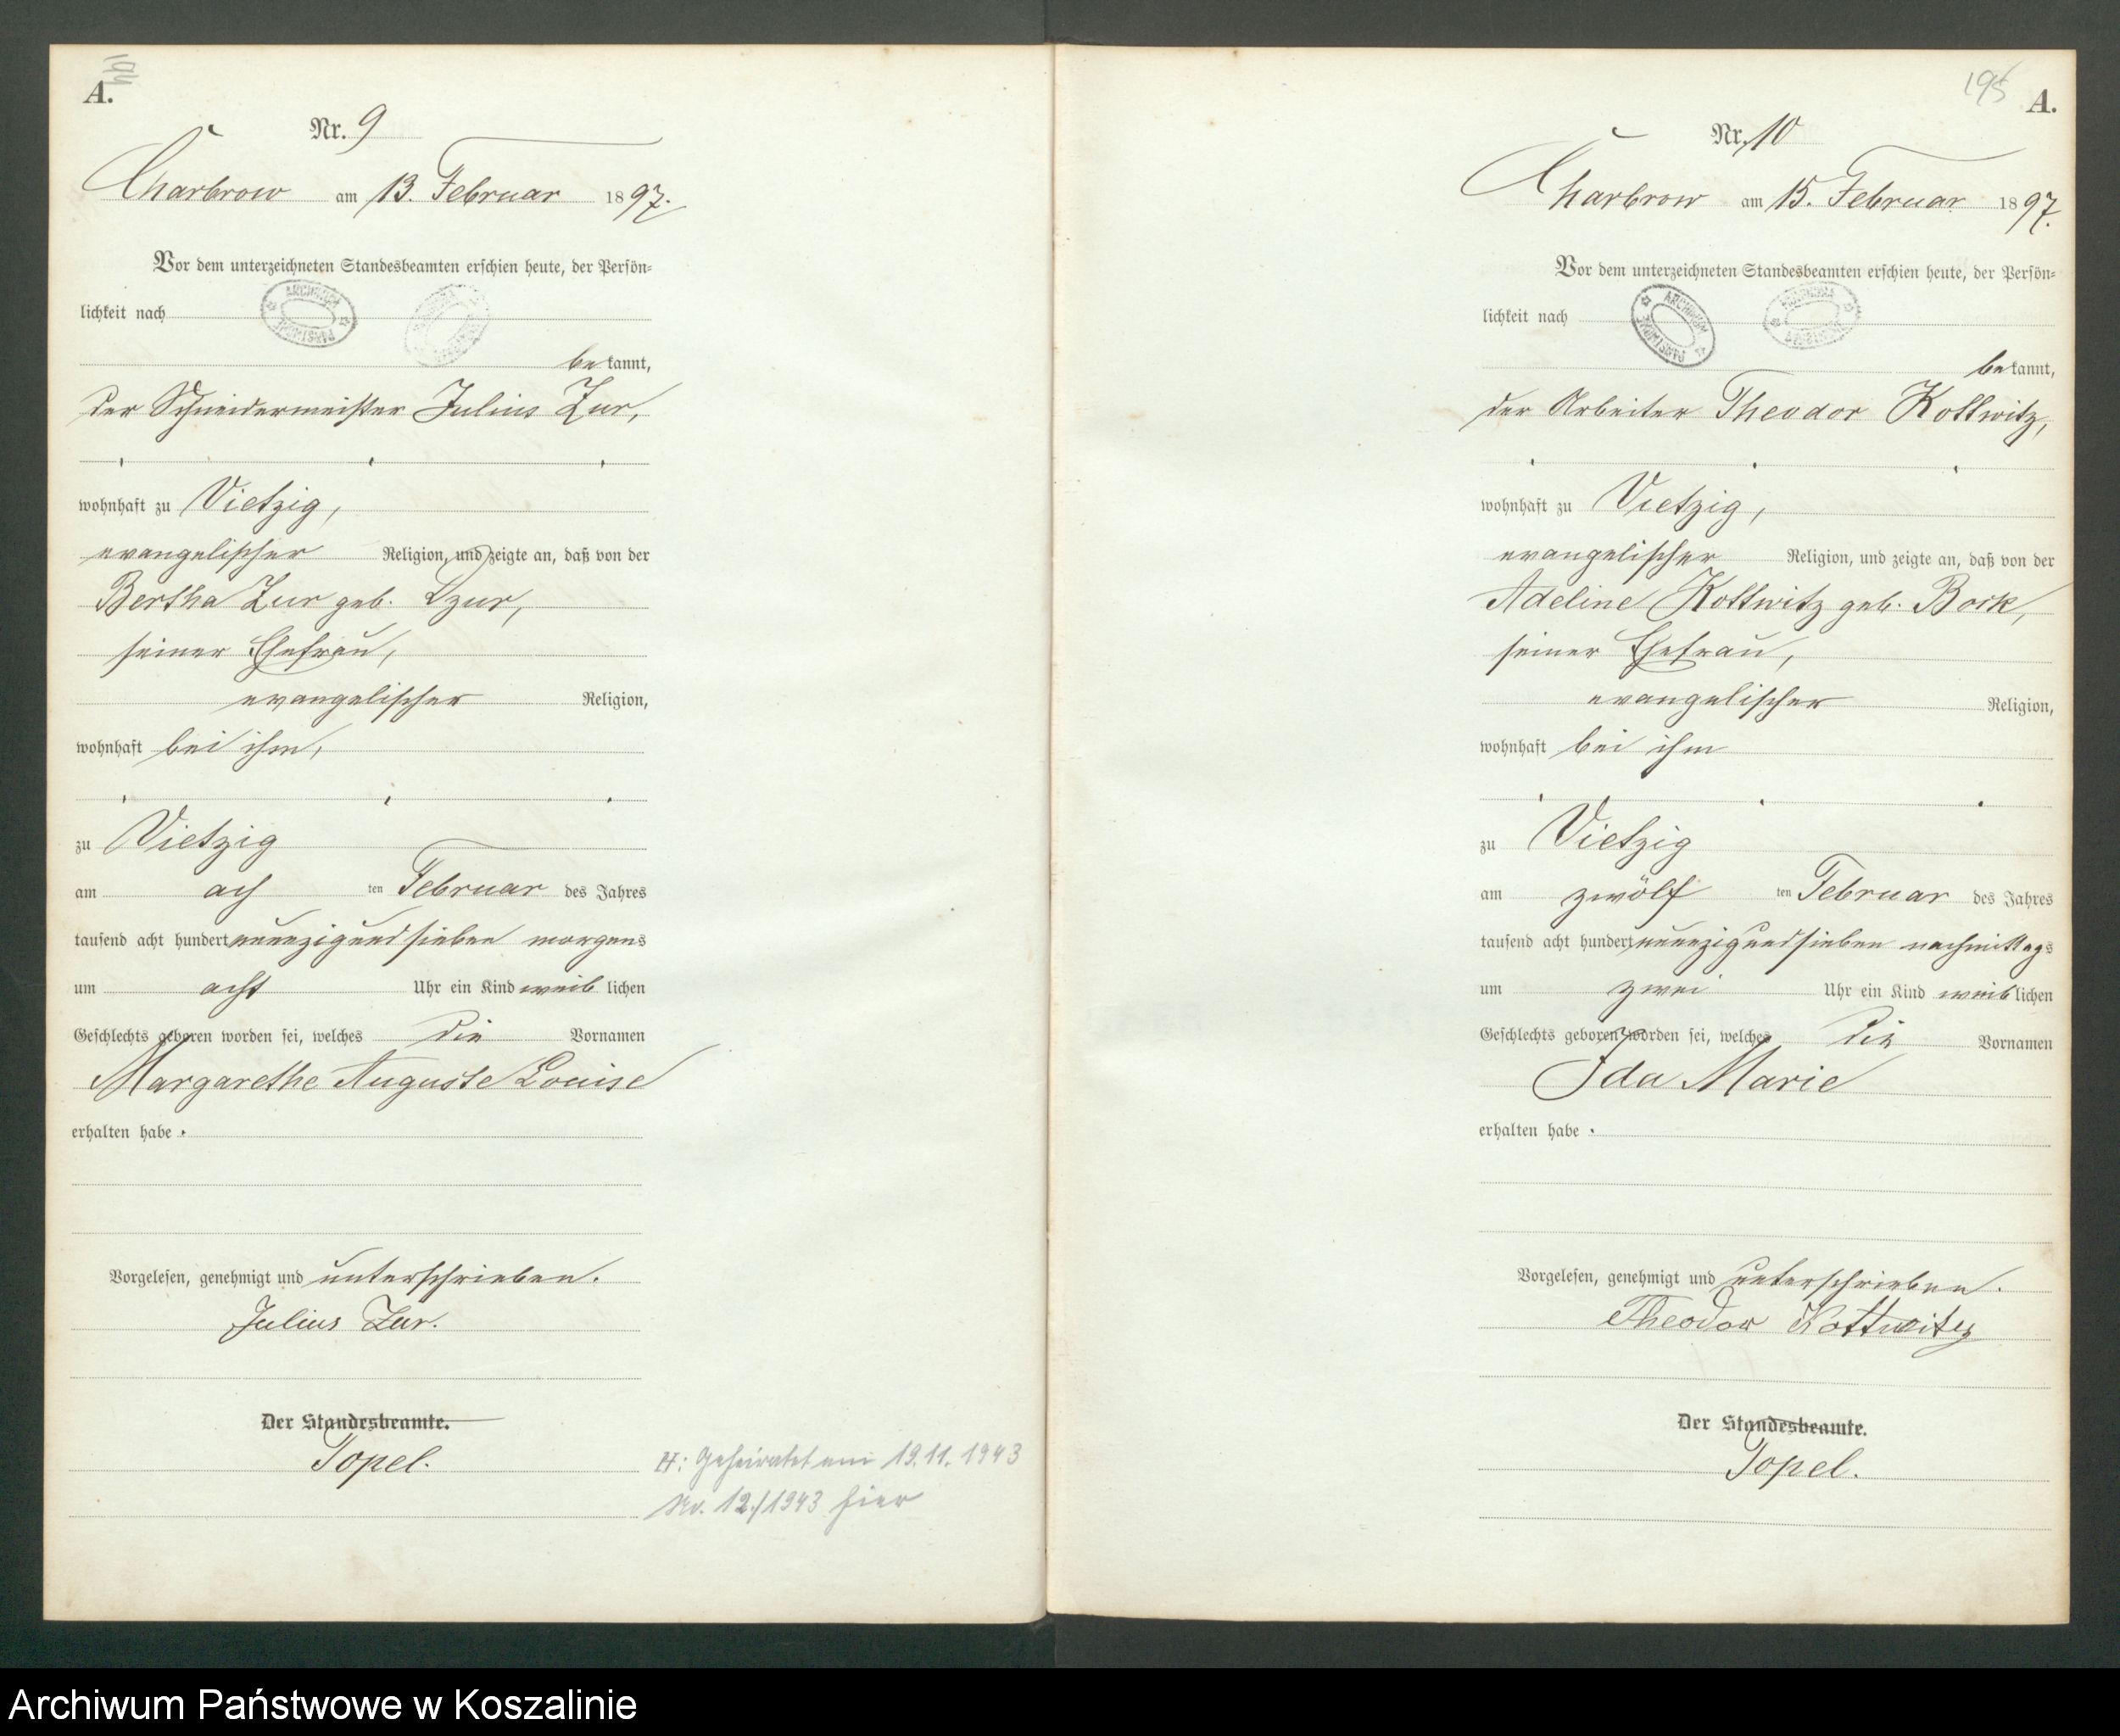 194
A.
Nr. 9
Charbrow am 13. Februar 1897.
Vor dem unterzeichneten Standesbeamten erschien heute, der Persön-
lichkeit nach
bekannt,
der Schneidermeister Julius Zur,
wohnhaft zu Vietzig,
evangelischer Religion, und zeigte an, daß von der
Bertha Zur geb. Czur,
seiner Ehefrau,
evangelischer Religion,
wohnhaft bei ihm,
zu Vietzig
am ach ten Februar des Jahres
tausend acht hundert neunzig und sieben morgens
um acht Uhr ein Kind weiblichen
Geschlechts geboren worden sei, welches die Vornamen
Margarethe Auguste Louise
erhalten habe.
Vorgelesen, genehmigt und unterschrieben.
Julius Zur.
Der Standesbeamte.
Topel.
H: Geheiratet am 19.11.1943
Nr. 12./1943 hier
195
A.
Nr. 10
Charbrow am 15. Februar 1897.
Vor dem unterzeichneten Standesbeamten erschien heute, der Persön-
lichkeit nach
bekannt,
der Arbeiter Theodor Kottwitz,
wohnhaft zu Vietzig,
evangelischer Religion, und zeigte an, daß von der
Adeline Kottwitz geb. Bork,
seiner Ehefrau,
evangelischer Religion,
wohnhaft bei ihm
zu Vietzig
am zwölf ten Februar des Jahres
tausend acht hundert neunzig und sieben nachmittags
um zwei Uhr ein Kind weiblichen
Geschlechts geboren worden sei, welches die Vornamen
Ida Marie
erhalten habe.
Vorgelesen, genehmigt und unterschrieben.
Theodor Kottwitz
Der Standesbeamte.
Topel.
Archiwum Państwowe w Koszalinie